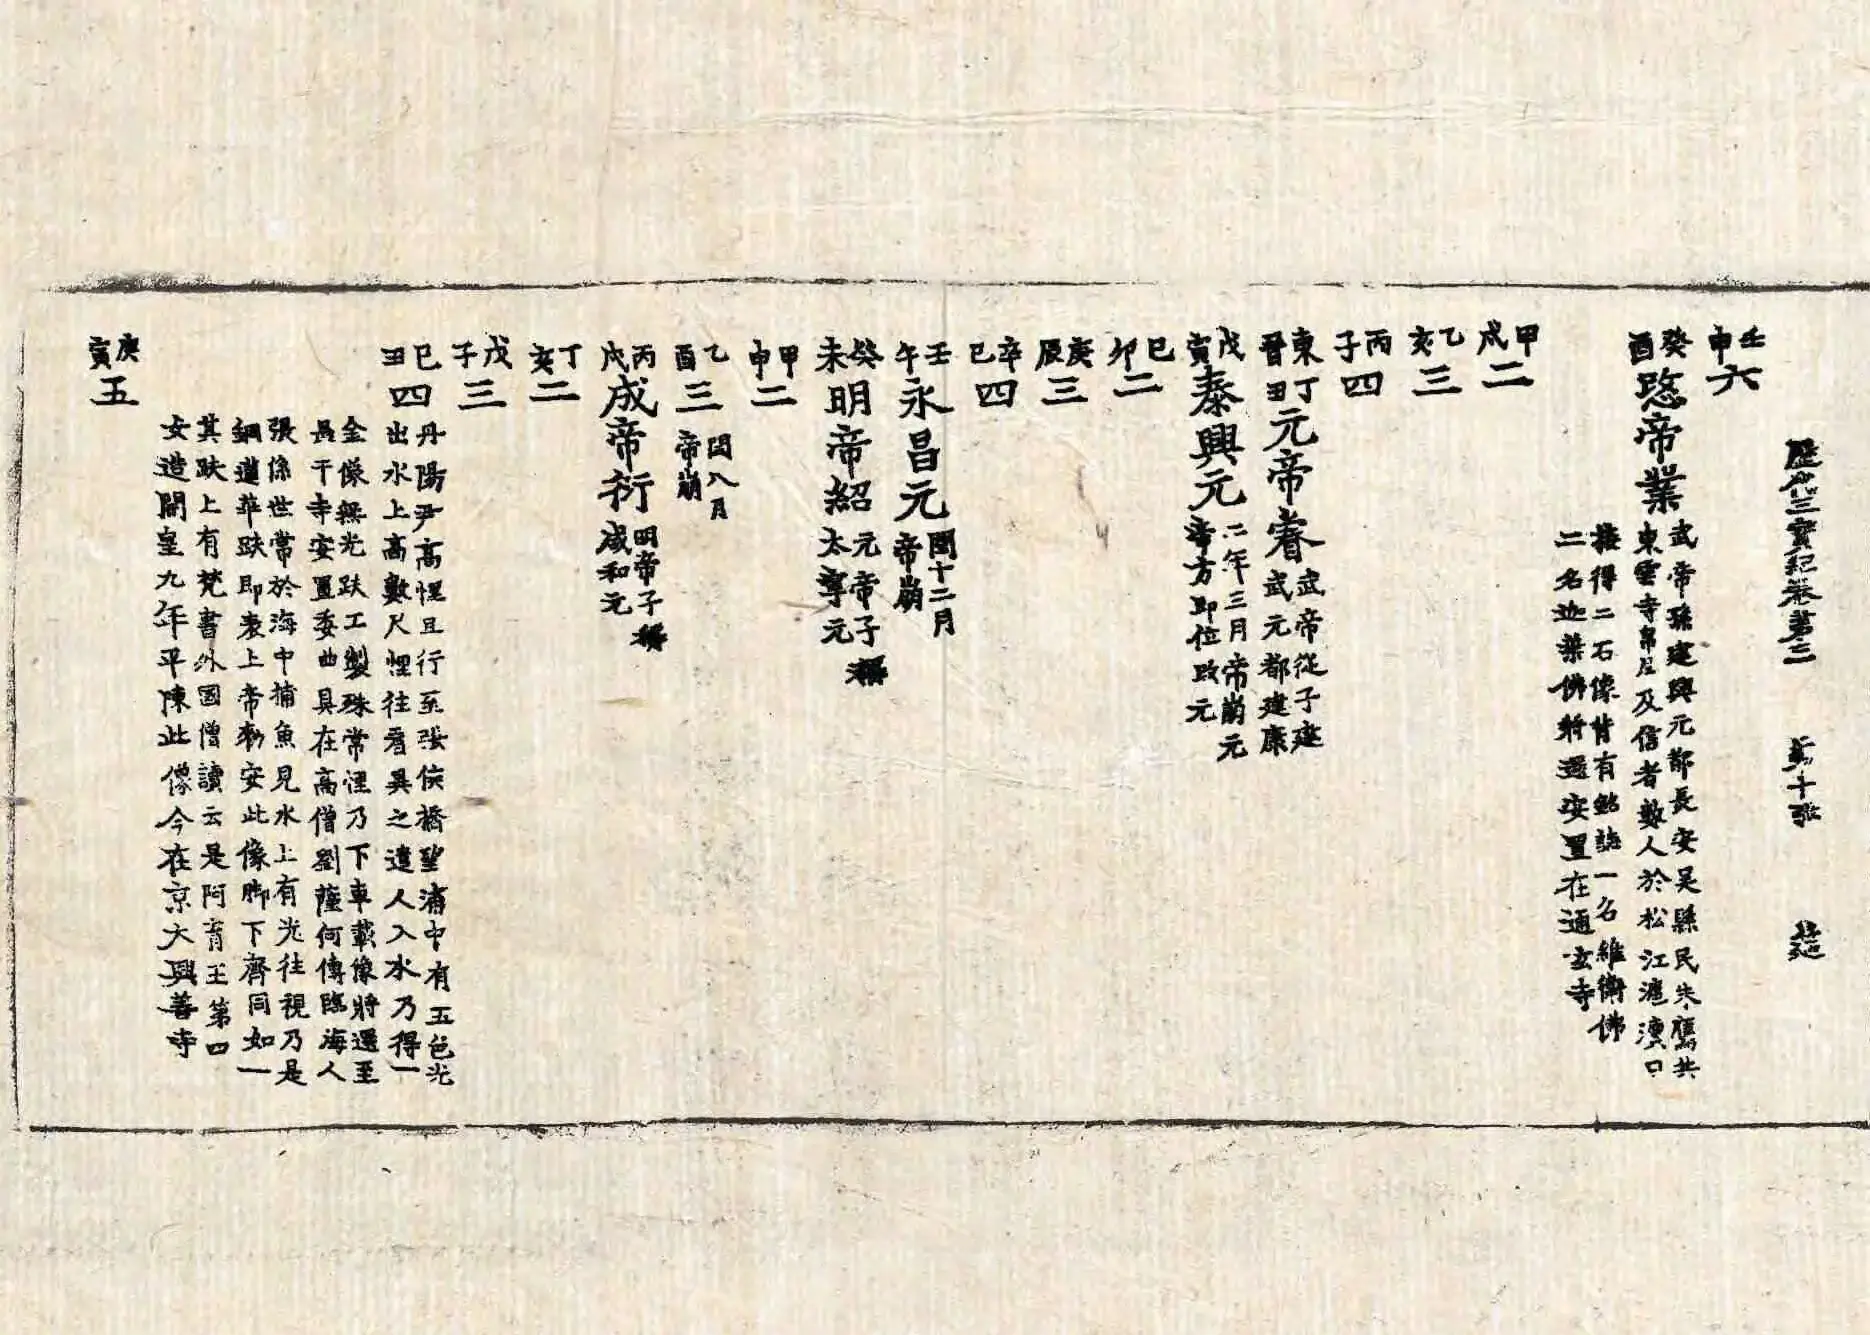 歷代三寶紀卷第三 第十張 楚
壬申六
癸酉愍帝業 武帝孫建興元都長安吳縣民朱膺共
東雲寺帛尼及信者數人於松江滬瀆口
接得二石像背有銘誌一名維衛佛
二名迦葉佛將還安置在通玄寺
甲戌二
乙亥三
丙子四
東晉丁丑元帝睿 武帝從子建
武元都建康
戊寅泰興元 二年三月帝崩元
帝方即位改元
己卯二
庚辰三
辛巳四
壬午永昌元 閏十二月
帝崩
癸未明帝紹 元帝子稱
太寧元
甲申二
乙酉三 閏八月
帝崩
丙戌成帝衍 明帝子稱
咸和元
丁亥二
戊子三
己丑四 丹陽尹高悝旦行至張侯橋望浦中有五色光
出水上高數尺悝往看異之遣人入水乃得一
金像無光趺工製殊常悝乃下車載像將還至
長干寺安置委曲具在高僧劉薩何傳臨海人
張係世常於海中捕魚見水上有光往視乃是
銅蓮華趺即表上帝勑安此像脚下齊同如一
其趺上有梵書外國僧讀云是阿育王第四
女造開皇九年平陳此像今在京大興善寺
庚寅五